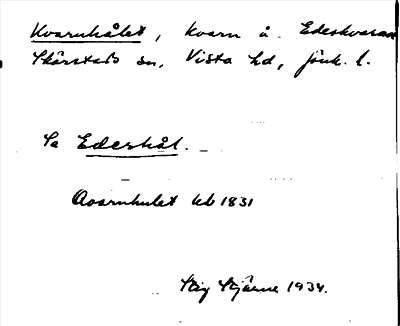 Kvarnhålet, kvarn å Edeskvarn
Skärstads sn, Vista hd, Jönk. l.
Se Edeshål.
Qvarnhulet kb 1831
Stig Stjärne 1934.